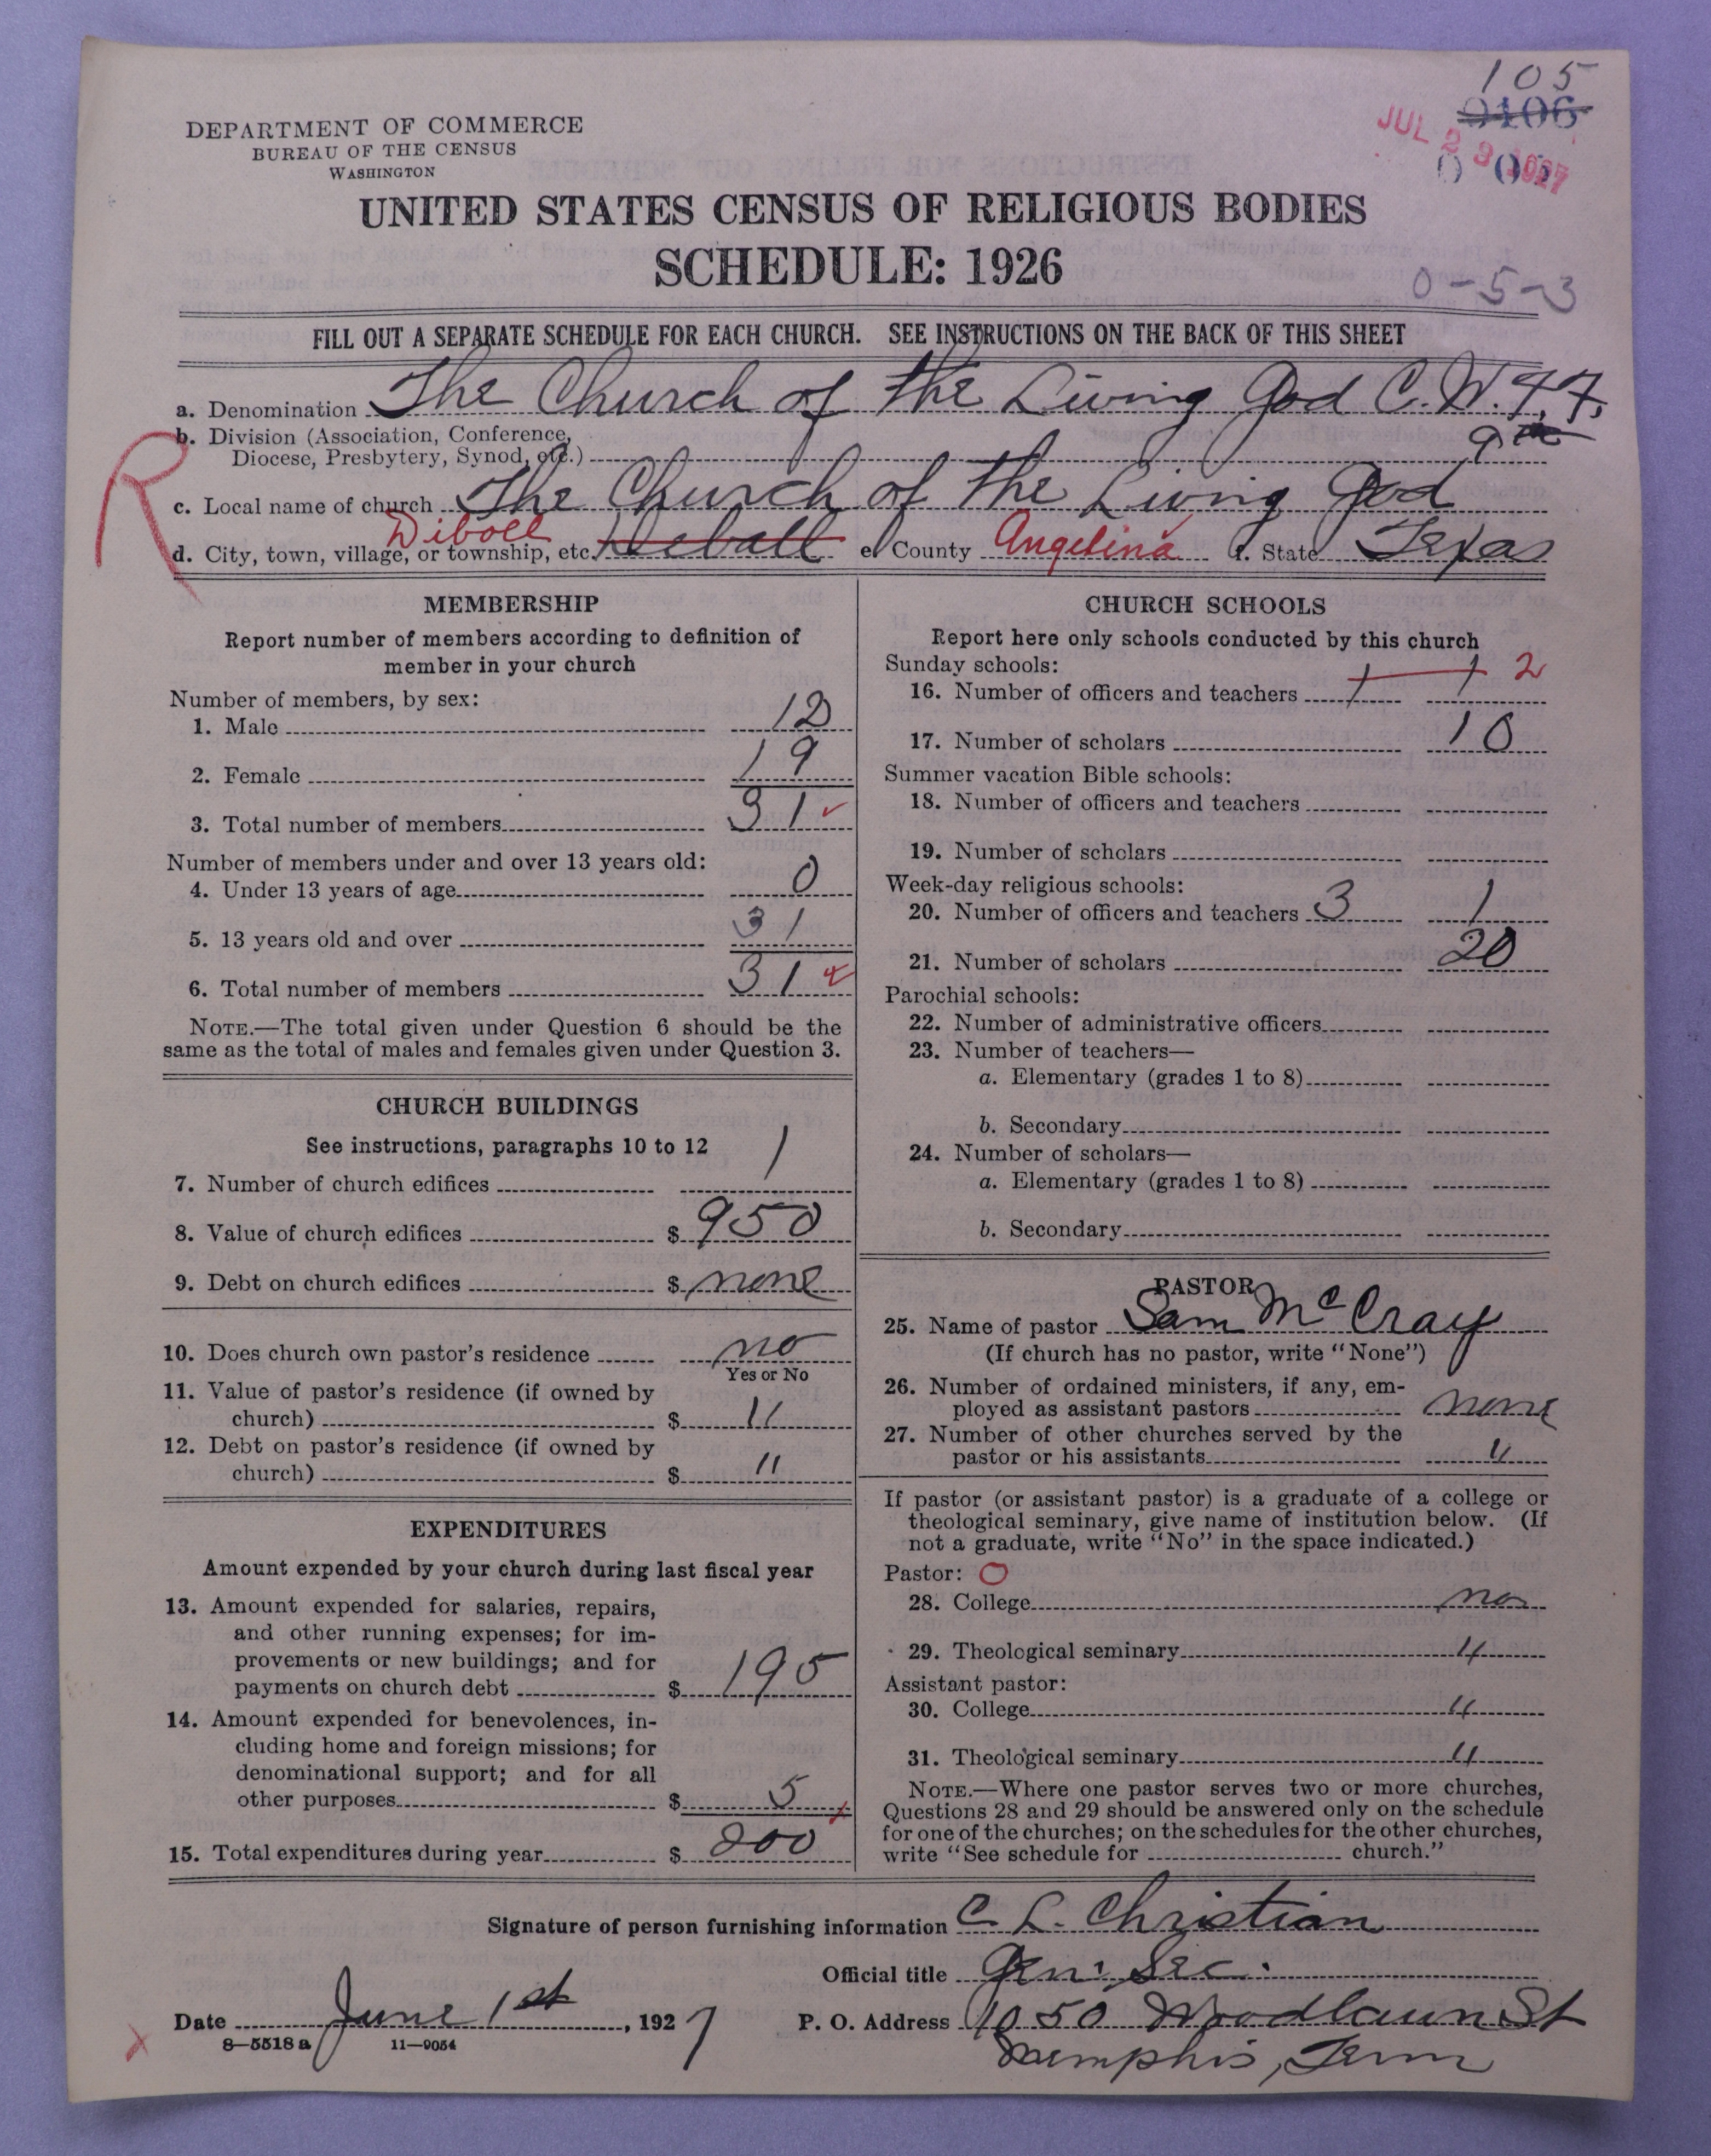 105
0106
JUL 29 1927
DEPARTMENT OF COMMERCE
BUREAU OF THE CENSUS
WASHINGTON
UNITED STATES CENSUS OF RELIGIOUS BODIES
SCHEDULE: 1926
0-5-3
FILL OUT A SEPARATE SCHEDULE FOR EACH CHURCH. SEE INSTRUCTIONS ON THE BACK OF THIS SHEET
a. Denomination The Church of the Living God C.W.F.F.
b. Division (Association, Conference,
Diocese, Presbytery, Synod, etc.)
R
c. Local name of church The Church of the Living God
Diboll
d. City, town, village, or township, etc. Deball e. County Angelina f. State Texas
MEMBERSHIP
Report number of members according to definition of
member in your church
Number of members, by sex:
1. Male 12
2. Female 19
3. Total number of members 31
Number of members under and over 13 years old:
4. Under 13 years of age 0
5. 13 years old and over 31
6. Total number of members 31
NOTE.—The total given under Question 6 should be the
same as the total of males and females given under Question 3.
CHURCH BUILDINGS
See instructions, paragraphs 10 to 12
7. Number of church edifices 1
8. Value of church edifices $ 950
9. Debt on church edifices $ none
10. Does church own pastor's residence no
Yes or No
11. Value of pastor's residence (if owned by
church) $ 11
12. Debt on pastor's residence (if owned by
church) $ 11
EXPENDITURES
Amount expended by your church during last fiscal year
13. Amount expended for salaries, repairs,
and other running expenses; for im-
provements or new buildings; and for
payments on church debt $ 195
14. Amount expended for benevolences, in-
cluding home and foreign missions; for
denominational support; and for all
other purposes $ 5
15. Total expenditures during year $ 200
CHURCH SCHOOLS
Report here only schools conducted by this church
Sunday schools:
16. Number of officers and teachers 1 1 2
17. Number of scholars 10
Summer vacation Bible schools:
18. Number of officers and teachers
19. Number of scholars
Week-day religious schools:
20. Number of officers and teachers 3 1
21. Number of scholars 20
Parochial schools:
22. Number of administrative officers
23. Number of teachers—
a. Elementary (grades 1 to 8)
b. Secondary
24. Number of scholars—
a. Elementary (grades 1 to 8)
b. Secondary
PASTOR
25. Name of pastor Sam McCray
(If church has no pastor, write "None")
26. Number of ordained ministers, if any, em-
ployed as assistant pastors none
27. Number of other churches served by the
pastor or his assistants 11
If pastor (or assistant pastor) is a graduate of a college or
theological seminary, give name of institution below. (If
not a graduate, write "No" in the space indicated.)
Pastor: O
28. College no
29. Theological seminary 11
Assistant pastor:
30. College 11
31. Theological seminary 11
NOTE.—Where one pastor serves two or more churches,
Questions 28 and 29 should be answered only on the schedule
for one of the churches; on the schedules for the other churches,
write "See schedule for church."
Signature of person furnishing information C. L. Christian
Official title Gen. Sec.
Date June 1st, 1927
P. O. Address 1050 Woodlawn St
Memphis, Tenn
8—5518 a 11—9054